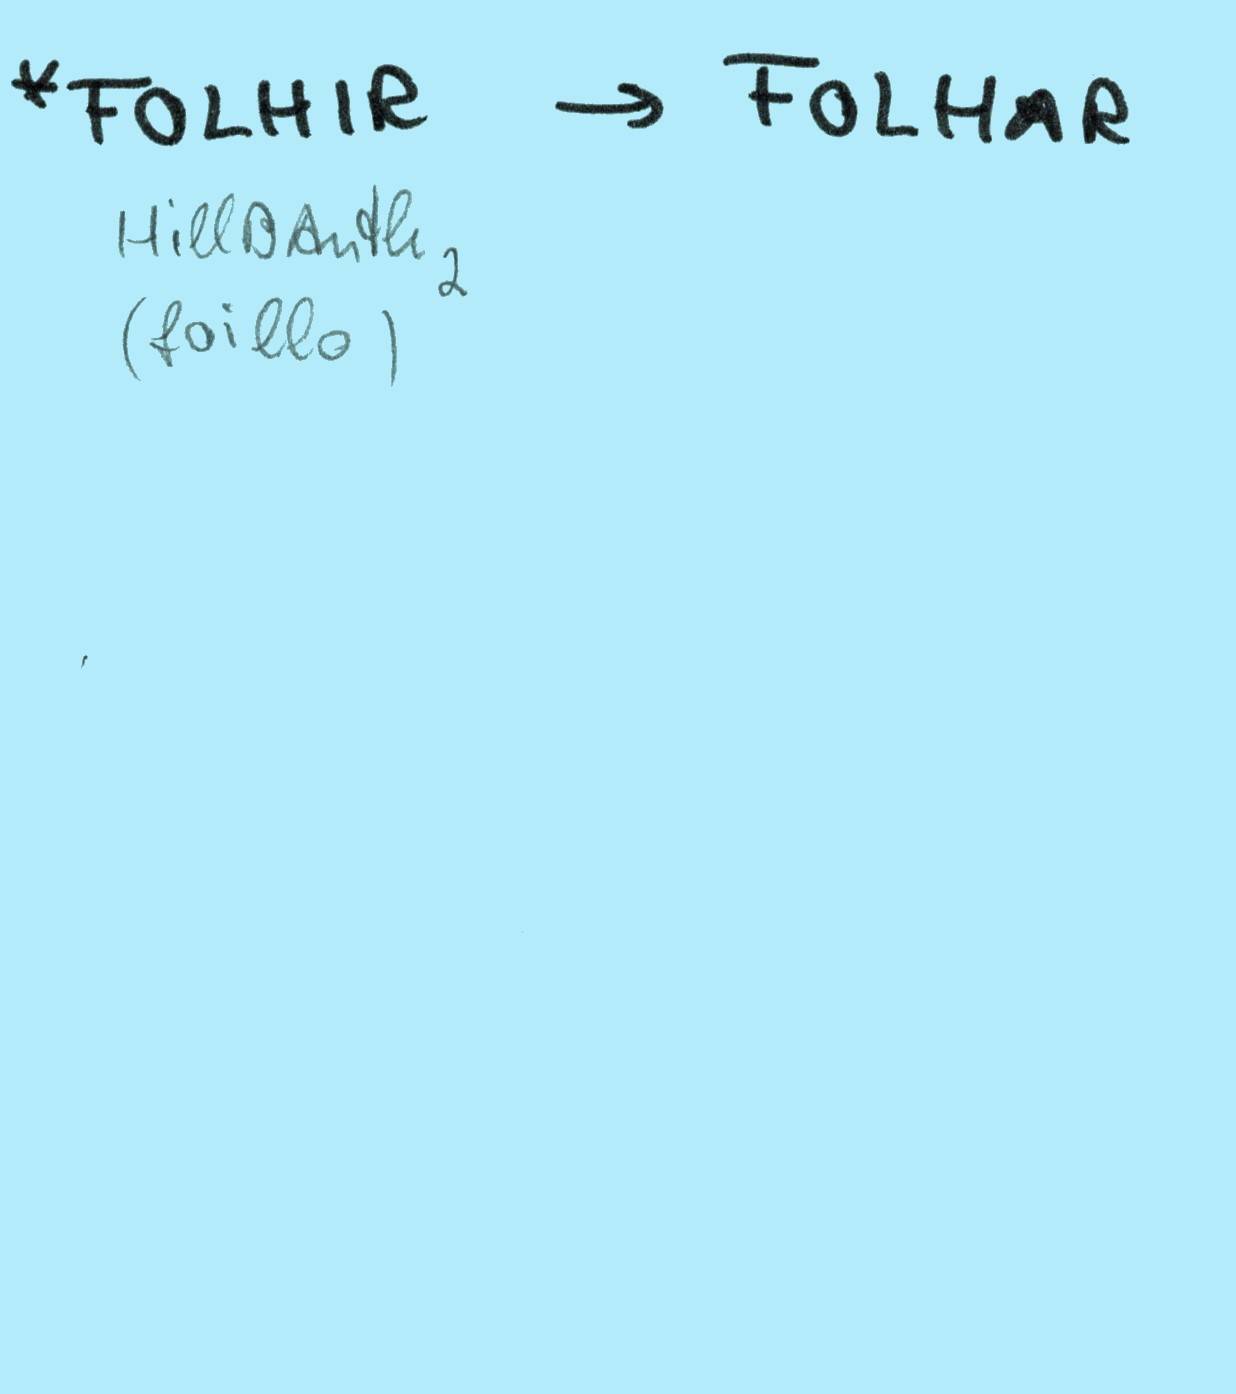 *FOLHIR → FOLHAR
HillBAnth₂
(foillo)